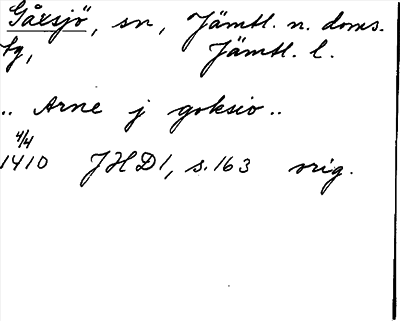 Gåxsjö, sn, Jämtl. n. doms.
hg, Jämtl. l.
.. Arne j goksio ..
4/4
1410 JHD 1, s. 163 orig.